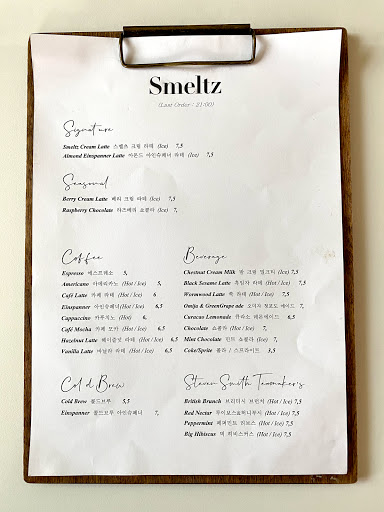 Smeltz
(Last Order : 21:00)
Signature
Smeltz Cream Latte 스멜츠 크림 라떼 (Ice) 7,5
Almond Einspanner Latte 아몬드 아인슈페너 라떼 (Ice) 7,5
Seasonal
Berry Cream Latte 베리 크림 라떼 (Ice) 7,5
Raspberry Chocolate 라즈베리 쇼콜라 (Ice) 7,
Coffee
Espresso 에스프레소 5,
Americano 아메리카노 (Hot / Ice) 5,
Café Latte 카페 라떼 (Hot / Ice) 6
Einspanner 아인슈페너(Hot / Ice) 6.5
Cappuccino 카푸치노 (Hot) 6,
Café Mocha 카페 모카 (Hot / Ice) 6,5
Hazelnut Latte 헤이즐넛 라떼 (Hot / Ice) 6,5
Vanilla Latte 바닐라 라떼 (Hot / Ice) 6,5
Cold Brew
Cold Brew 콜드브루 5,5
Einspanner 콜드브루 아인슈페너 7,
Beverage
Chestnut Cream Milk 밤 크림 밀크티 (Ice) 7,5
Black Sesame Latte 흑임자 라떼 (Hot / Ice) 7,5
Wormwood Latte 쑥 라떼 (Hot / Ice) 7,5
Omija & GreenGrape ade 오미자 청포도 에이드 7,
Curacao Lemonade 큐라소 레몬에이드 6,5
Chocolate 쇼콜라 (Hot / Ice) 7,
Mint Chocolate 민트 쇼콜라 (Hot / Ice) 7,
Coke/Sprite 콜라 / 스프라이트 3,5
Steven Smith Teamaker's
British Brunch 브리티시 브런치 (Hot / Ice) 7,5
Red Nectar 루이보스&허니부시 (Hot / Ice) 7,5
Peppermint 페퍼민트 (Hot / Ice) 7,5
Big Hibiscus 빅 히비스커스 (Hot / Ice) 7,5